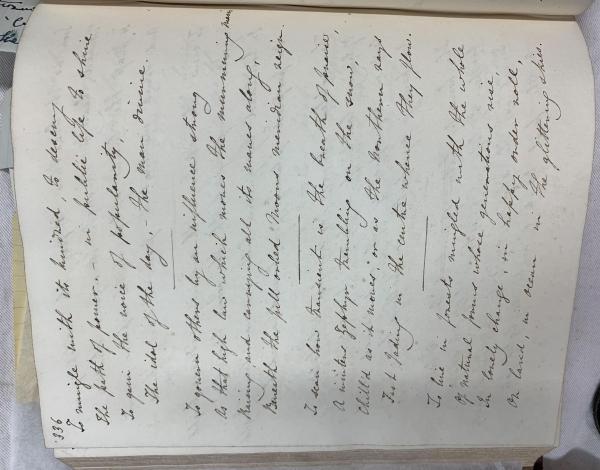 336
To mingle with its hundred, to descry
The path of power, – in public life to shine
To gain the voice of popularity,
The idol of the day, the man divine.
To govern others by an influence strong
As that high law which moves the murmuring main
Raising and carrying all its waves along,
Beneath the full orbed Moons meridian reign.
To scan how transient is the breath of praise,
A winters Zephyr trembling on the snow,
Chilld as it moves; or as the Northern rays
First fading in the centre whence they flow.
To live in forests mingled with the whole
Of natural forms whose generations rise,
In lovely change, in happy order roll,
On land, in ocean in the glittering skies.